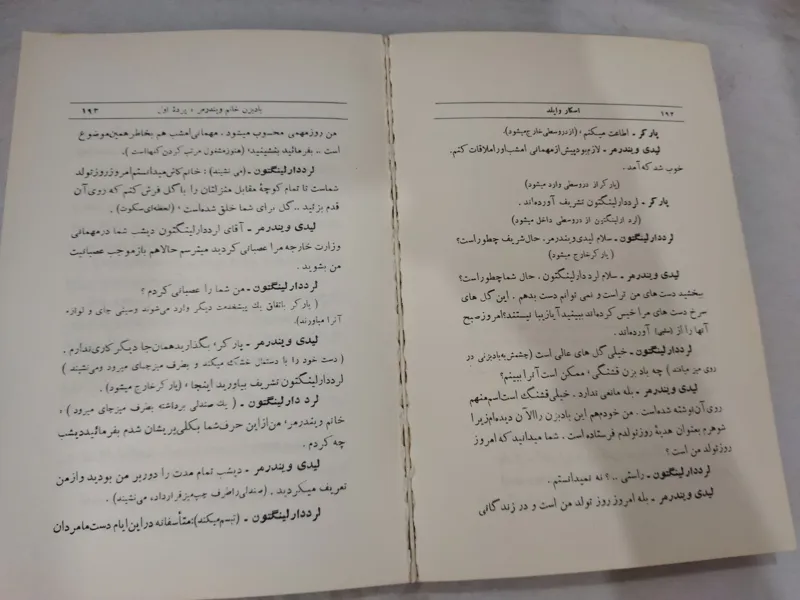 ۱۹۲ اسکار وایلد
پارکر ـ اطاعت میکنم ، (از در وسطی خارج میشود).
لیدی ویندرمر ـ لازم بود پیش از مهمانی امشب او را ملاقات کنم.
خوب شد که آمد .
(پارکر از در وسطی وارد میشود)
پارکر ـ لرد دارلینگتون تشریف آورده‌اند.
(لرد دارلینگتون از در وسطی داخل میشود)
لرد دارلینگتون ـ سلام لیدی ویندرمر، حال شریف چطور است؟
(پارکر خارج میشود)
لیدی ویندرمر ـ سلام لرد دارلینگتون ، حال شما چطور است؟
ببخشید دست های من تر است و نمی توانم دست بدهم . این گل های
سرخ دست های مرا خیس کرده‌اند ببینید آیا زیبا نیستند؟ امروز صبح
آنها را از (سلبی) آورده‌اند.
لرد دارلینگتون ـ خیلی گل های عالی است (چشمش به بادبزنی در
روی میز میافتد) چه بادبزن قشنگی ، ممکن است آنرا ببینم؟
لیدی ویندرمر ـ بله مانعی ندارد . خیلی قشنگ است اسم منهم
روی آن نوشته شده‌است . من خودم هم این بادبزن را الآن دیده‌ام زیرا
شوهرم بعنوان هدیهٔ روز تولدم فرستاده است . شما میدانید که امروز
روز تولد من است ؟
لرد دارلینگتون ـ راستی ..؟ نه نمیدانستم .
لیدی ویندرمر ـ بله امروز روز تولد من است و در زندگانی
بادبزن خانم ویندرمر ، پردهٔ اول ۱۹۳
من روز مهمی محسوب میشود . مهمانی امشب هم بخاطر همین موضوع
است .. بفرمائید بنشینید، (هنوز مشغول مرتب کردن گلهااست).
لرد دارلینگتون ـ (می نشیند) : خانم کاش میدانستم امروز روز تولد
شماست تا تمام کوچهٔ مقابل منزلتان را با گل فرش کنم که روی آن
قدم بزنید .. گل برای شما خلق شده‌است ، (لحظه‌ای سکوت) .
لیدی ویندرمر ـ آقای لرد دارلینگتون دیشب شما در مهمانی
وزارت خارجه مرا عصبانی کردید میترسم حالا هم باز موجب عصبانیت
من بشوید .
لرد دارلینگتون ـ من شما را عصبانی کردم ؟
(پارکر باتفاق یك پیشخدمت دیگر وارد می‌شوند وسینی چای و لوازم
آنرا میاورند).
لیدی ویندرمر ـ پارکر، بگذارید همان‌جا دیگر کاری ندارم .
(دست خود را با دستمال خشك میکند و بطرف میزچای میرود ومی‌نشیند)
لرد دارلینگتون تشریف بیاورید اینجا ، (پارکر خارج میشود) .
لرد دارلینگتون ـ (یك صندلی برداشته بطرف میزچای میرود) ،
خانم ویندرمر، من از این حرف شما بکلی پریشان شدم بفرمائید دیشب
چه کردم .
لیدی ویندرمر ـ دیشب تمام مدت را دور بر من بودید و از من
تعریف میکردید . (صندلی را طرف چپ میز قرار داده، می‌نشیند) .
لرد دارلینگتون ـ (تبسم میکند) : متأسفانه در این ایام دست ما مردان